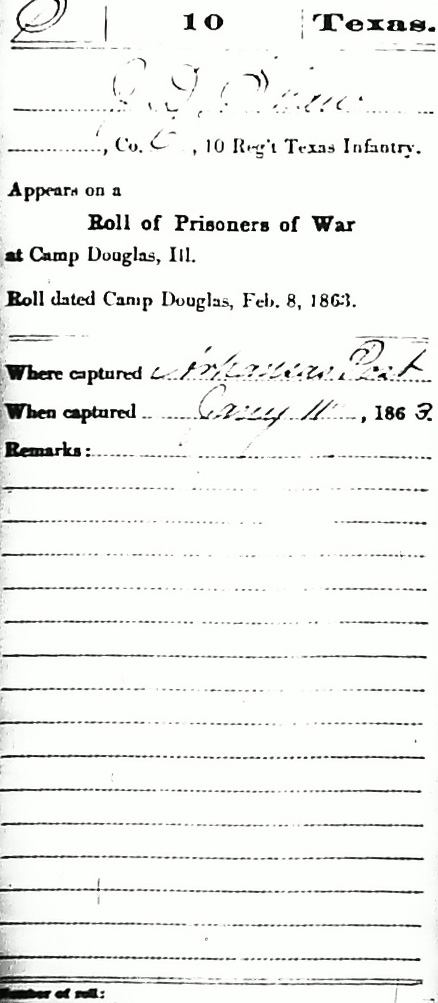 10 Texas.
, Co. , 10 Reg't Texas Infantry.
Appears on a
Roll of Prisoners of War
at Camp Douglas, Ill.
Roll dated Camp Douglas, Feb. 8, 1863.
Where captured Arkansas Post
When captured Jany 11, 1863.
Remarks:
Number of roll: